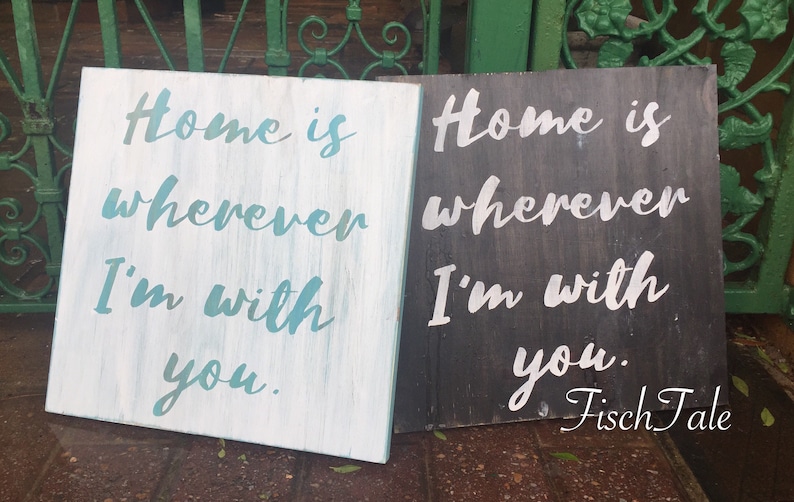 Home is
wherever
I'm with
you.
Home is
wherever
I'm with
you.
FischTale